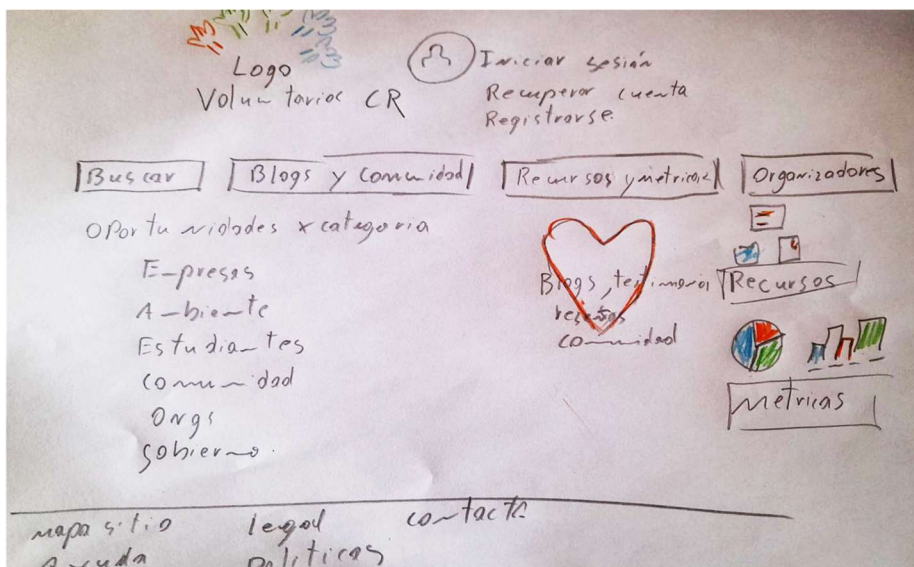 Logo
Voluntarios CR
Iniciar sesión
Recuperar cuenta
Registrarse.
Buscar
Blogs y Comunidad
Recursos y metricas
Organizadores
Oportunidades x categoria
Empresas
Ambiente
Estudiantes
Comunidad
Ongs
Gobierno.
Blogs, testimonios
reseñas
comunidad
Recursos
Métricas
mapa sitio
legal
contacto
Ayuda
Políticas